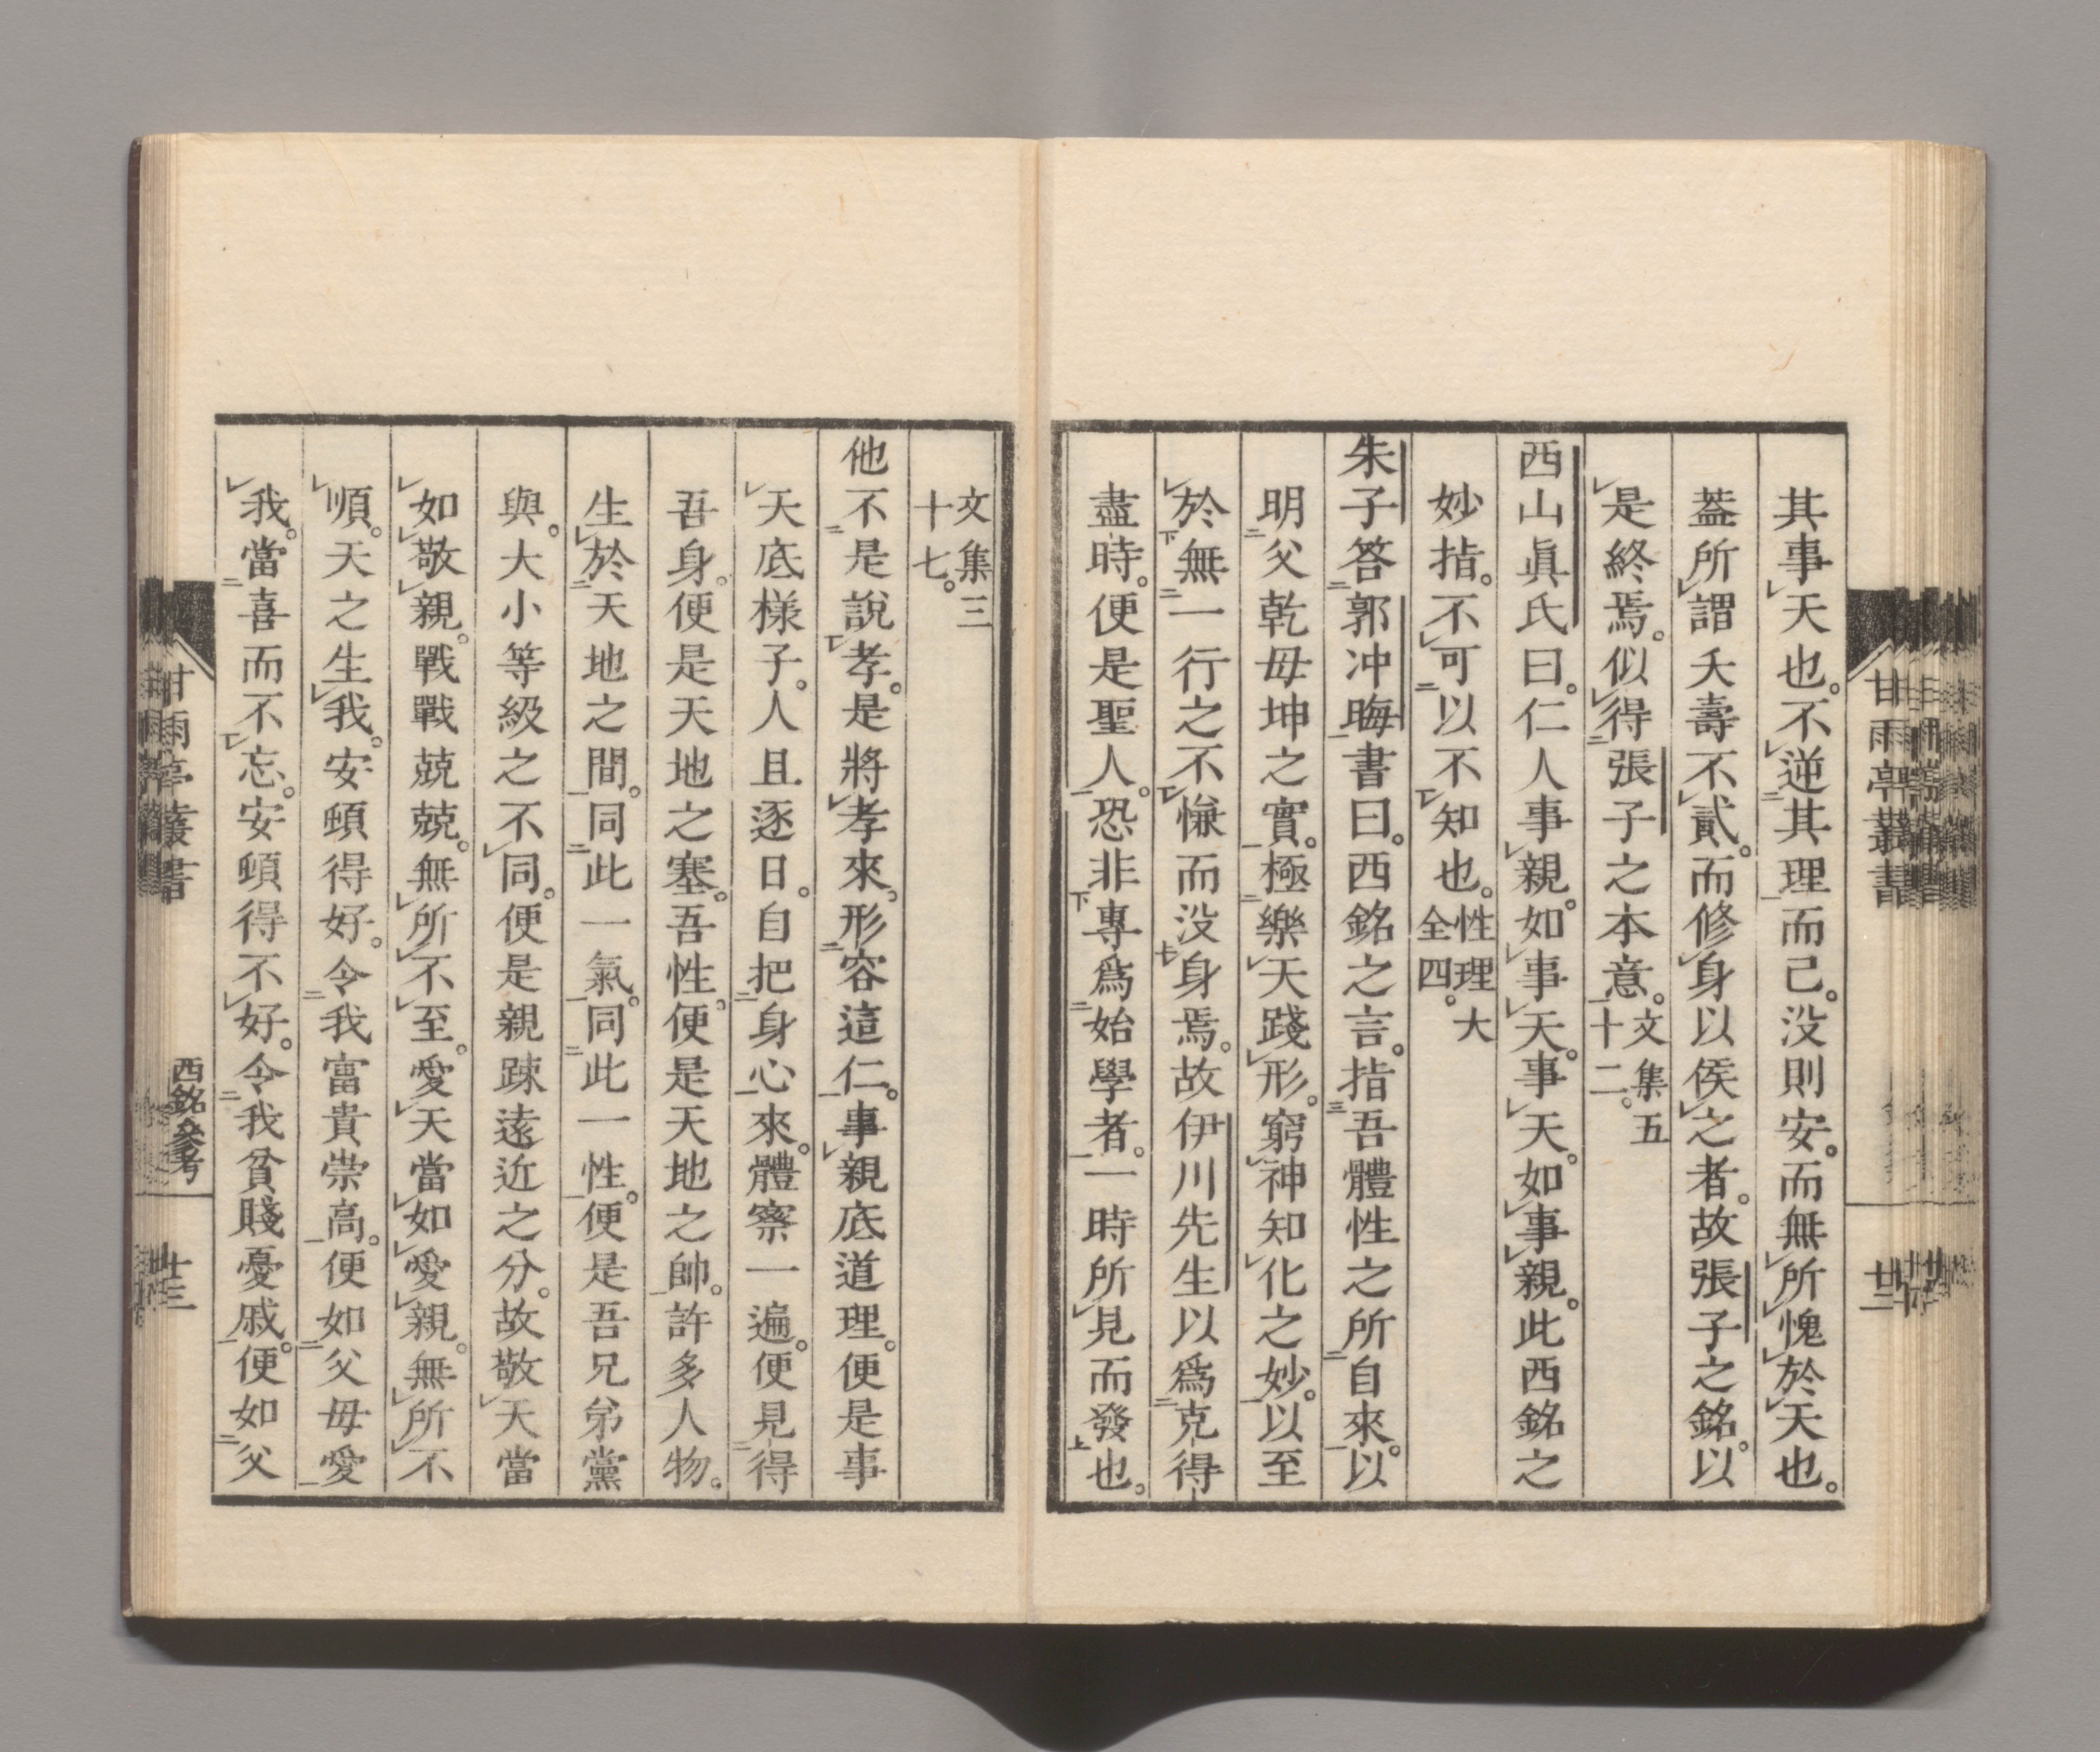 其事天也。不逆其理而已。没則安。而無所愧於天也。
葢所謂夭壽不貳。而修身以俟之者。故張子之銘。以
是終焉。似得張子之本意。文集五
十二。
西山眞氏曰。仁人事親。如事天。事天。如事親。此西銘之
妙指。不可以不知也。性理大
全四。
朱子答郭冲晦書曰。西銘之言。指吾體性之所自來。以
明父乾母坤之實。極樂天踐形。窮神知化之妙。以至
於無一行之不慊而没身焉。故伊川先生以爲克得
盡時。便是聖人。恐非專爲始學者。一時所見而發也。
文集三
十七。
他不是說孝。是將孝來。形容這仁。事親底道理。便是事
天底樣子。人且逐日。自把身心來。體察一遍。便見得
吾身。便是天地之塞。吾性。便是天地之帥。許多人物。
生於天地之間。同此一氣。同此一性。便是吾兄弟黨
與。大小等級之不同。便是親踈遠近之分。故敬天當
如敬親。戰戰兢兢。無所不至。愛天當如愛親。無所不
順。天之生我。安頓得好。令我富貴崇高。便如父母愛
我。當喜而不忘。安頓得不好。令我貧賤憂戚。便如父
甘雨亭叢書
廿二
甘雨亭叢書
西銘參考
廿三